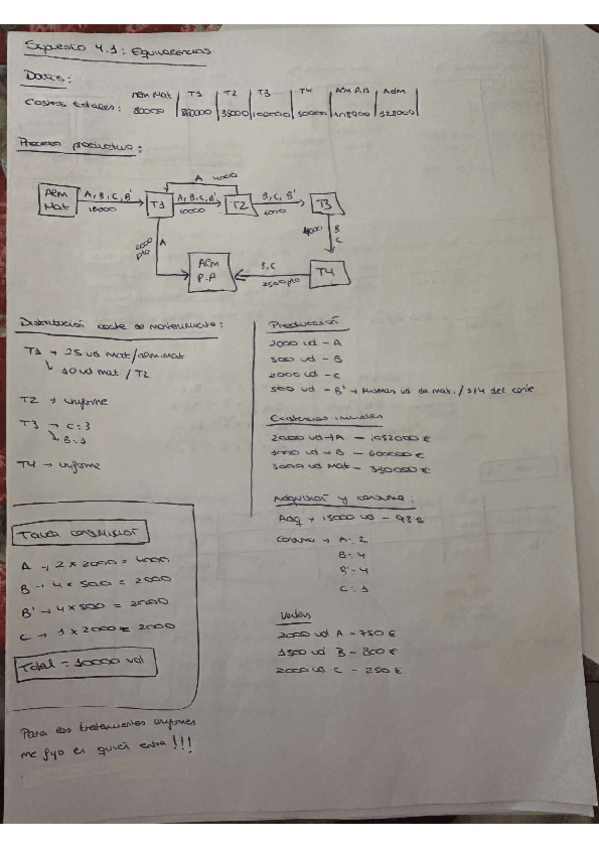 Supuesto 4.1: Equivalencias
Datos:
Alm Mat | T1 | T2 | T3 | T4 | Alm P.A | Adm
Costes totales: 80000 | | 35000 | | 50000 | |
Proceso productivo:
A 4000
Alm Mat
A, B, C, B'
10000
T1
A, B, C, B'
10000
T2
B, C, B'
T3
2000 pto
A
4000
B
C
Alm P.A
B, C
2500 pto
T4
Distribución coste de mantenimiento:
T1 → 25 ud Mat/Alm.Mat
↳ 10 ud mat / T2
T2 → uniforme
T3 → C: 3
↘ B: 1
T4 → uniforme
Tabla consumición
A → 2 x 2000 = 4000
B → 4 x 500 = 2000
B' → 4 x 500 = 2000
C → 1 x 2000 = 2000
Total = 10000 ud
Para los tratamientos uniformes
me fijo en quien entra !!!
Producción
2000 ud - A
500 ud - B
2000 ud - C
500 ud - B' → Mismas ud de mat. / 3/4 del coste
Existencias iniciales
2000 ud → A - 1052000 €
1000 ud → B - 600000 €
3000 ud Mat - 330000 €
Adquisición y consumo:
Adq → 15000 ud - 98 €
Consumo → A: 2
B: 4
B': 4
C: 1
Ventas
2000 ud A - 750 €
1500 ud B - 800 €
2000 ud C - 250 €